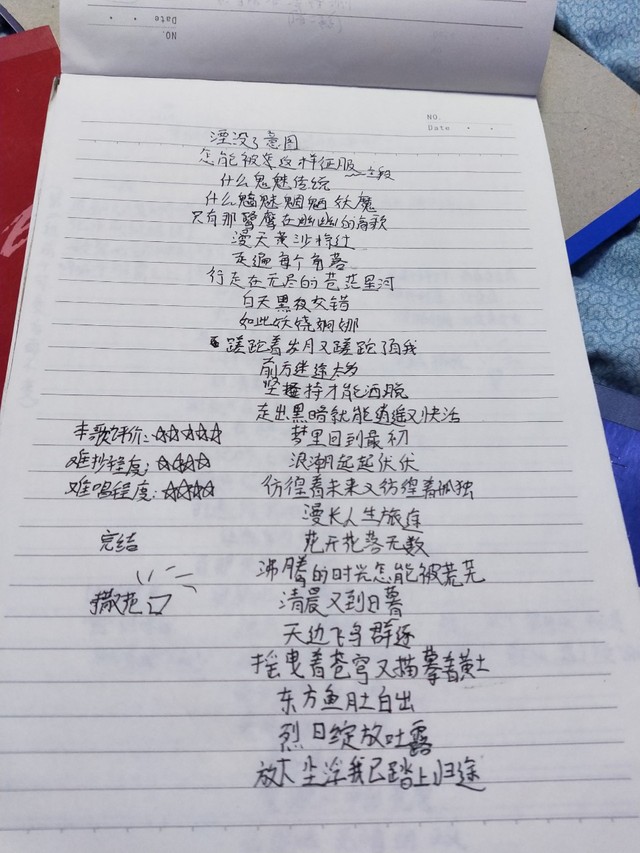 NO.
Date
NO.
Date
湮没了意图
怎能被莫这样征服
什么鬼魅传统
什么魑魅魍魉妖魔
只有那鹭鹰在幽幽的高歌
漫天黄沙掠过
走遍每个角落
行走在无尽的苍茫星河
白天黑夜交错
如此妖娆婀娜
蹉跎着岁月又蹉跎了自我
前方迷途太多
坚持才能洒脱
走出黑暗就能逍遥又快活
本歌评价：☆☆☆☆☆ 梦里回到最初
难抄程度：☆☆☆☆ 浪潮起起伏伏
难唱程度：☆☆☆☆ 彷徨着未来又彷徨着孤独
漫长人生旅途
完结 花开花落无数
沸腾的时光怎能被荒芜
撒花 清晨又到日暮
天边飞鸟群逐
摇曳着苍穹又描摹着黄土
东方鱼肚白出
烈日绽放吐露
放下尘浮我已踏上归途